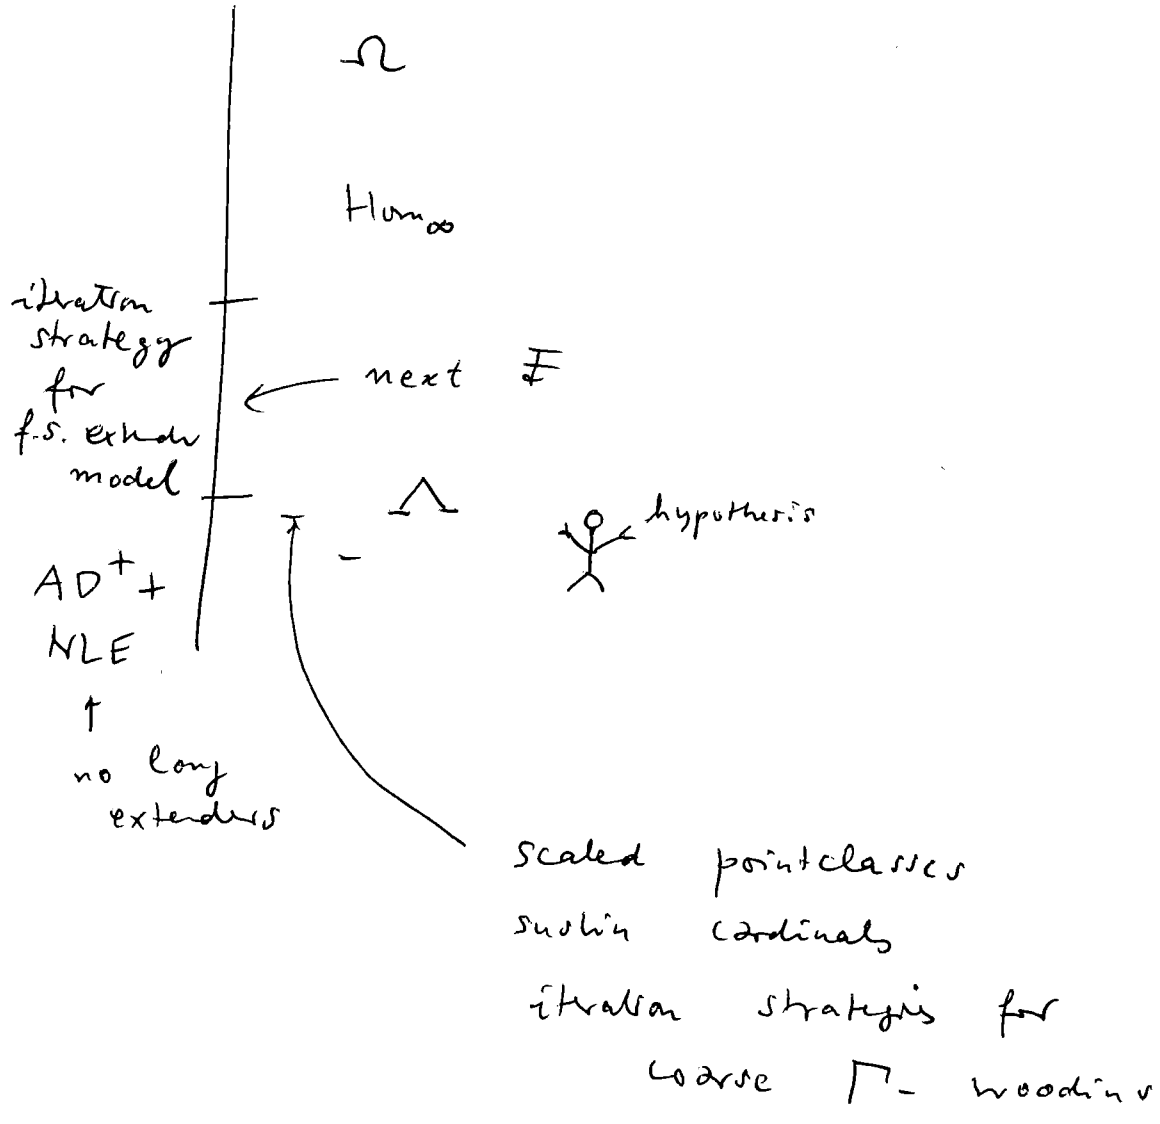 Ω
Hom∞
iteration
strategy
for
f.s. extender
model
next E
Λ
hypothesis
AD⁺ +
NLE
↑
no long
extenders
scaled pointclasses
suslin cardinals
iteration strategies for
coarse Γ- woodins